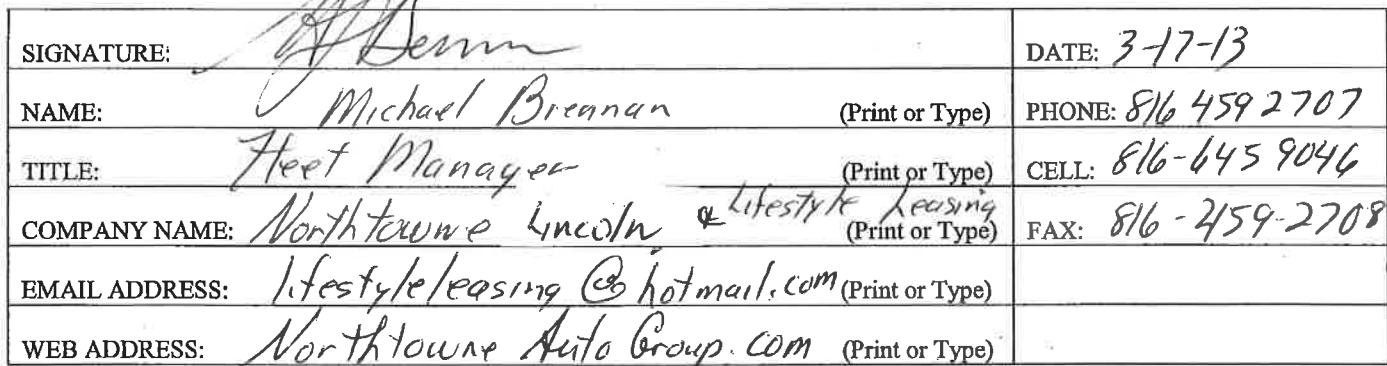 SIGNATURE: DATE: 3-17-13
NAME: Michael Brennan (Print or Type) PHONE: 816 459 2707
TITLE: Fleet Manager (Print or Type) CELL: 816-645 9046
COMPANY NAME: Northtowne Lincoln & Lifestyle Leasing (Print or Type) FAX: 816-459-2708
EMAIL ADDRESS: lifestyleleasing@hotmail.com (Print or Type)
WEB ADDRESS: Northtowne Auto Group.com (Print or Type)